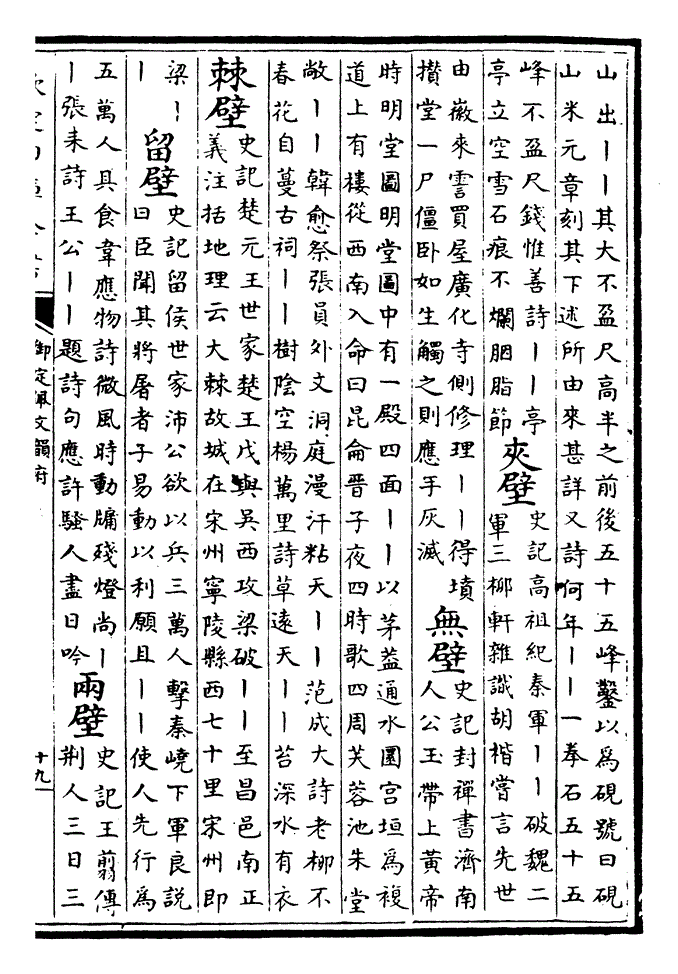 山出丨丨其大不盈尺高半之前後五十五峰鑿以為硯號曰硯
山米元章刻其下述所由來甚詳又詩何年丨丨一拳石五十五
峰不盈尺錢惟善詩丨丨亭
亭立空雪石痕不爛胭脂節
夾壁
史記高祖紀秦軍丨丨破魏二
軍三柳軒雜識胡楷嘗言先世
由徽來霅買屋廣化寺側修理丨丨得墳
攢堂一尸僵卧如生觸之則應手灰滅
無壁
史記封禪書濟南
人公玉帶上黃帝
時明堂圖明堂圖中有一殿四面丨丨以茅葢通水圜宮垣為複
道上有樓從西南入命曰昆侖晉子夜四時歌四周芙蓉池朱堂
敞丨丨韓愈祭張員外文洞庭漫汗粘天丨丨范成大詩老柳不
春花自蔓古祠丨丨樹陰空楊萬里詩草遠天丨丨苔深水有衣
棘壁
史記楚元王世家楚王戊與吳西攻梁破丨丨至昌邑南正
義注括地理云大棘故城在宋州寧陵縣西七十里宋州即
梁丨
丨
留壁
史記留侯世家沛公欲以兵三萬人擊秦嶢下軍良説
曰臣聞其將屠者子易動以利願且丨丨使人先行為
五萬人具食韋應物詩微風時動牖殘燈尚丨
丨張耒詩王公丨丨題詩句應許騷人盡日吟
兩壁
史記王翦傳
荆人三日三
御定佩文韻府
十九